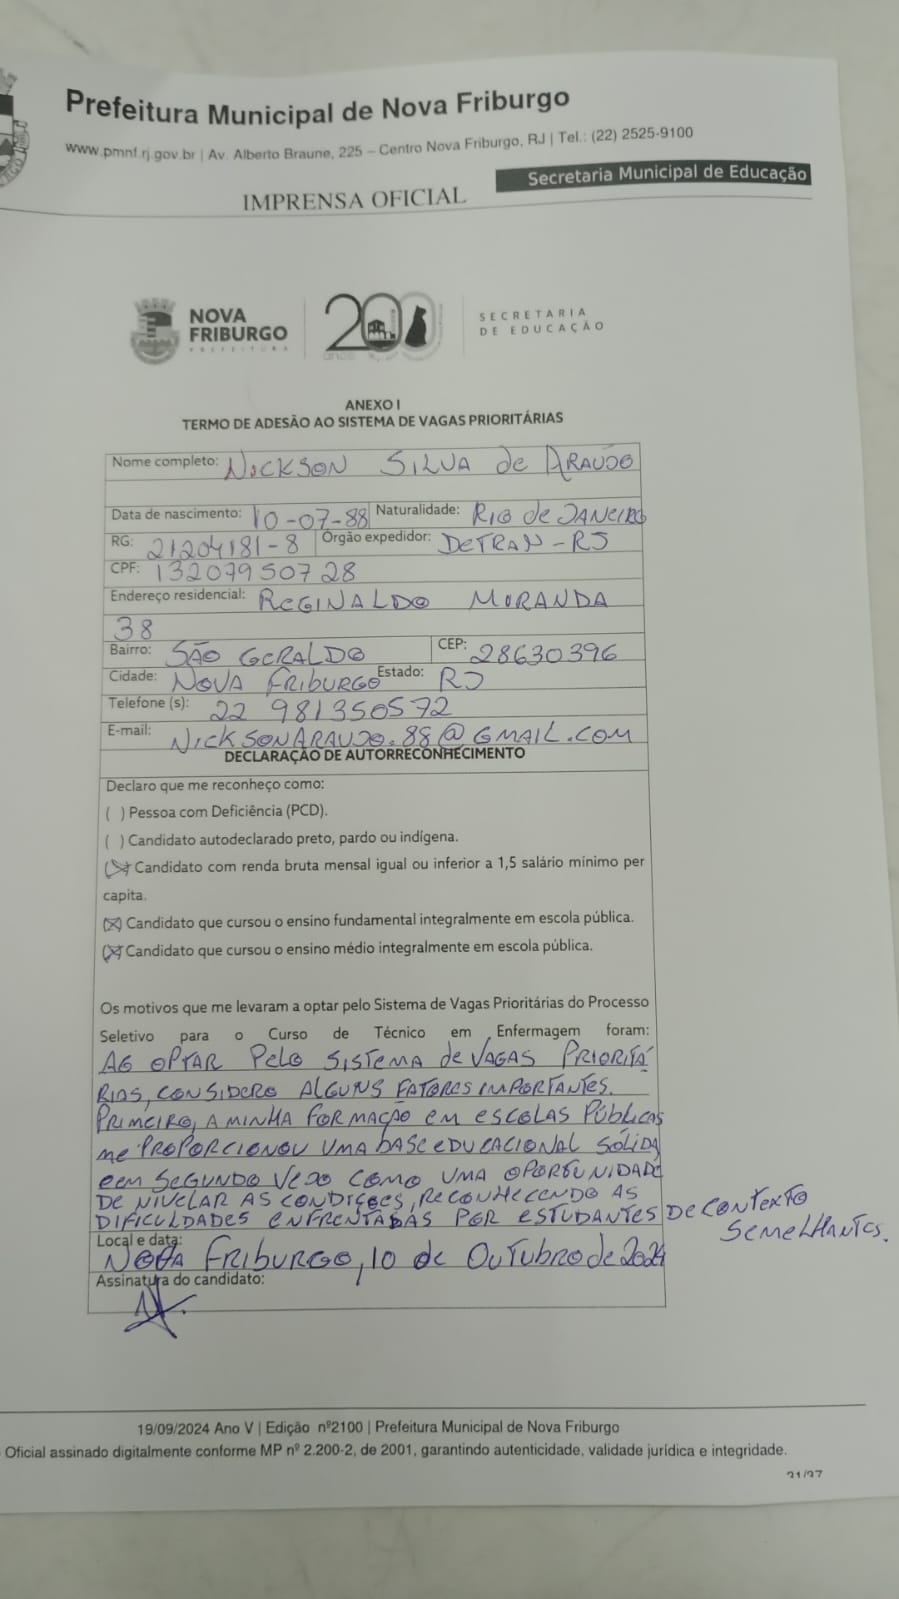 Prefeitura Municipal de Nova Friburgo
www.pmnf.rj.gov.br | Av. Alberto Braune, 225 – Centro Nova Friburgo, RJ | Tel.: (22) 2525-9100
Secretaria Municipal de Educação
IMPRENSA OFICIAL
NOVA FRIBURGO
PREFEITURA
200
anos
SECRETARIA
DE EDUCAÇÃO
ANEXO I
TERMO DE ADESÃO AO SISTEMA DE VAGAS PRIORITÁRIAS
Nome completo: NICKSON SILVA de ARAUJO
Data de nascimento: 10-07-88 Naturalidade: RIO de JANEIRO
RG: 21204181-8 Órgão expedidor: DETRAN-RJ
CPF: 13207950728
Endereço residencial: REGINALDO MIRANDA
38
Bairro: SÃO GERALDO CEP: 28630396
Cidade: NOVA FRIBURGO Estado: RJ
Telefone (s): 22 981350572
E-mail: NICKSONARAUJO.88@GMAIL.COM
DECLARAÇÃO DE AUTORRECONHECIMENTO
Declaro que me reconheço como:
( ) Pessoa com Deficiência (PCD).
( ) Candidato autodeclarado preto, pardo ou indígena.
(X) Candidato com renda bruta mensal igual ou inferior a 1,5 salário mínimo per
capita.
(X) Candidato que cursou o ensino fundamental integralmente em escola pública.
(X) Candidato que cursou o ensino médio integralmente em escola pública.
Os motivos que me levaram a optar pelo Sistema de Vagas Prioritárias do Processo
Seletivo para o Curso de Técnico em Enfermagem foram:
AO OPTAR PELO SISTEMA de VAGAS PRIORITÁ
RIAS, CONSIDERO ALGUNS FATORES IMPORTANTES.
PRIMEIRO, A MINHA FORMAÇÃO em ESCOLAS PÚBLICAS
me PROPORCIONOU UMA BASE EDUCACIONAL SÓLIDA
e em SEGUNDO VEJO COMO UMA OPORTUNIDADE
DE NIVELAR AS CONDIÇÕES, RECONHECENDO AS
DIFICULDADES ENFRENTADAS POR ESTUDANTES DE CONTEXTO
SEMELHANTES.
Local e data:
NOVA FRIBURGO, 10 de OUTUBRO de 2024
Assinatura do candidato:
19/09/2024 Ano V | Edição nº2100 | Prefeitura Municipal de Nova Friburgo
Oficial assinado digitalmente conforme MP nº 2.200-2, de 2001, garantindo autenticidade, validade jurídica e integridade.